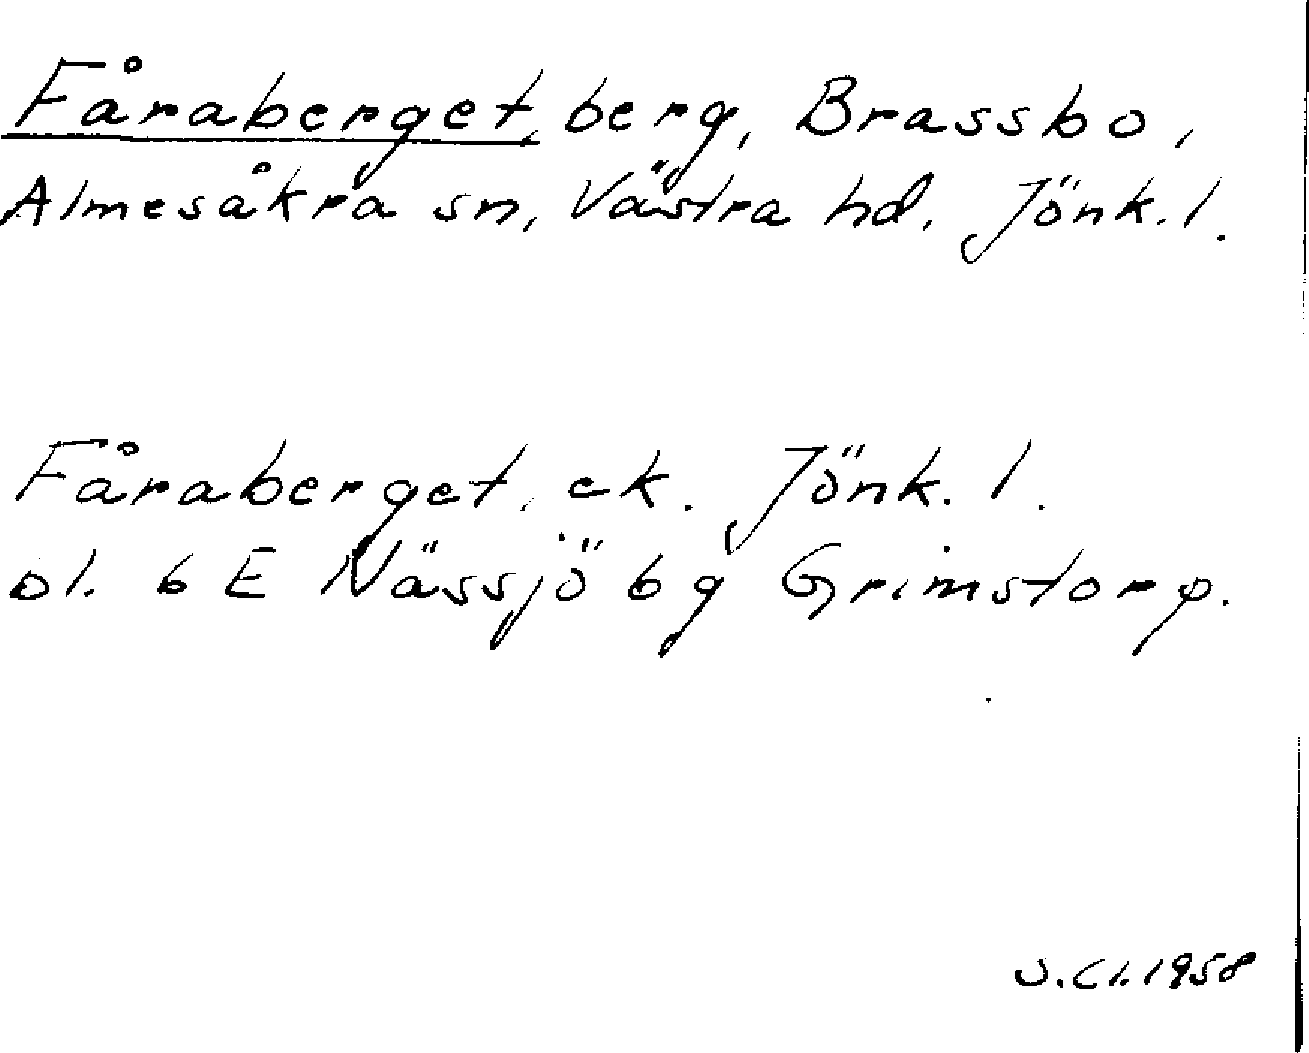 Fåraberget, berg, Brassbo,
Almesåkra sn, Västra hd, Jönk. l.
Fåraberget, ek. Jönk. l.
bl. 6 E Nässjö 6 g Grimstorp.
1958